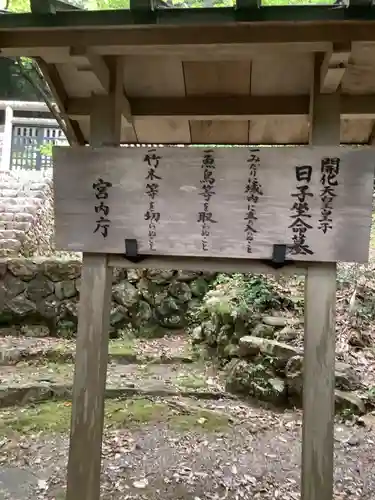 開化天皇皇子
日子坐命墓
一みだりに域内に立入らぬこと
一魚鳥等を取らぬこと
一竹木等を切らぬこと
宮内庁